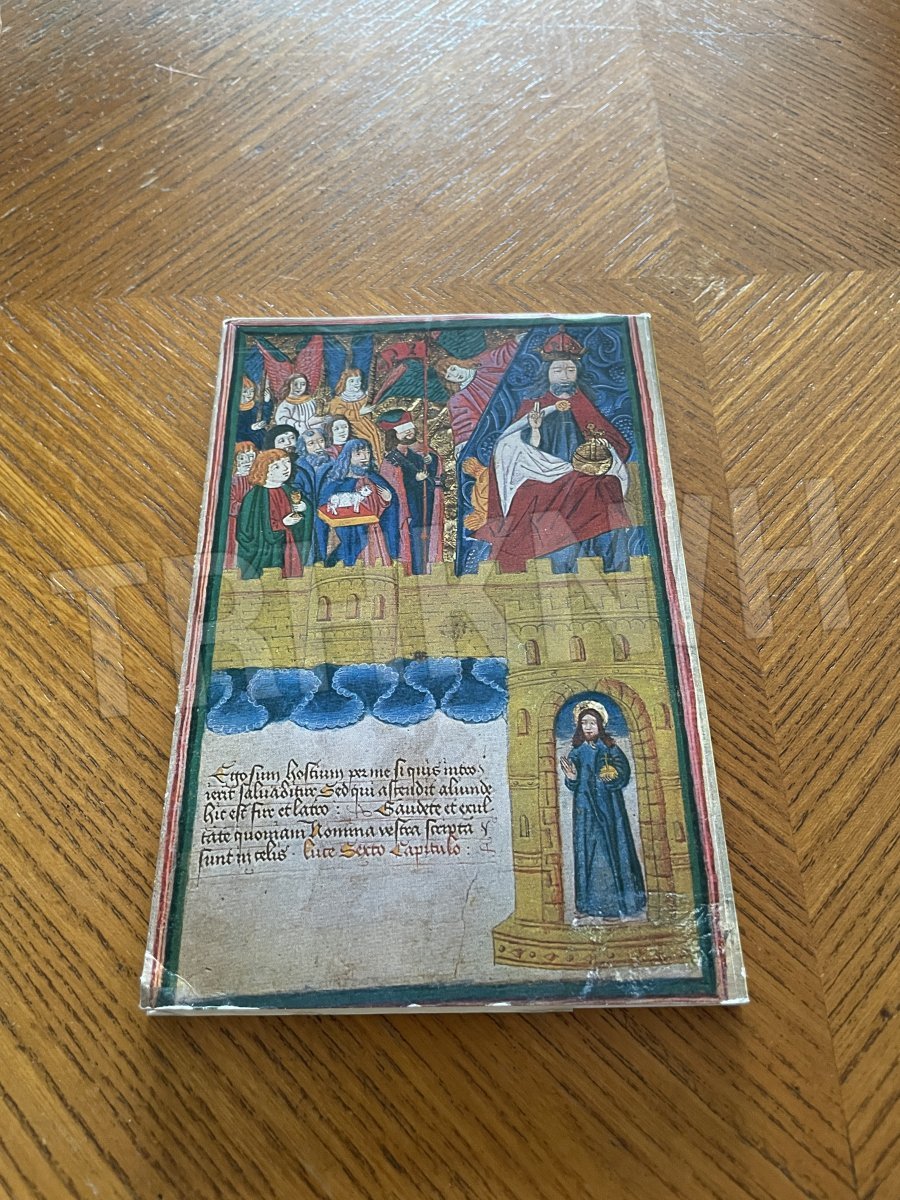 Ego sum hostium per me si quis intro
ierit saluabitur Sed qui assendit aliunde
hic est fur et latro : Gaudete et exul
tate quoniam Nomina vestra scripta
sunt in celis · luce Sexto Capitulo :